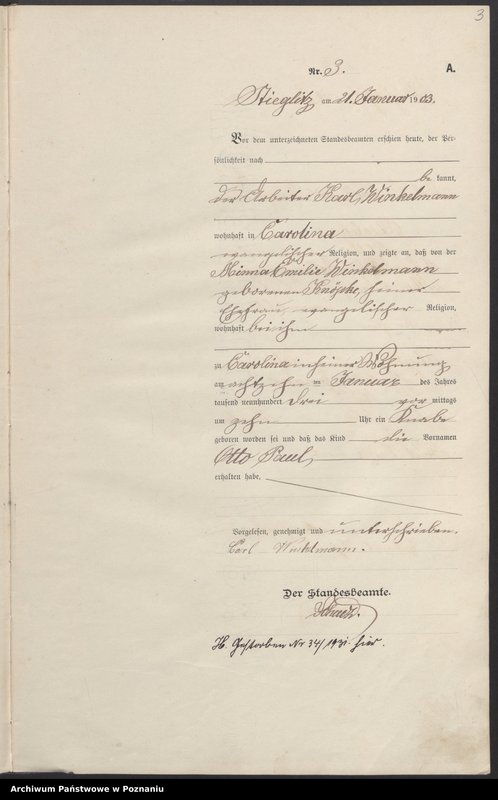 3
Nr. 3. A.
Stieglitz am 21. Januar 1903.
Vor dem unterzeichneten Standesbeamten erschien heute, der Per-
sönlichkeit nach
be kannt,
der Arbeiter Karl Winkelmann
wohnhaft in Carolina
evangelischer Religion, und zeigte an, daß von der
Minna Emilie Winkelmann
geborenen seiner
Ehefrau, evangelischer Religion,
wohnhaft bei ihm
zu Carolina in seiner Wohnung
am achtzehn ten Januar des Jahres
tausend neunhundert drei vor mittags
um zehn Uhr ein Knabe
geboren worden sei und daß das Kind die Vornamen
Otto Paul
erhalten habe.
Vorgelesen, genehmigt und unterschrieben.
Carl Winkelmann.
Der Standesbeamte.
Gestorben Nr 34/1931 hier.
Archiwum Państwowe w Poznaniu